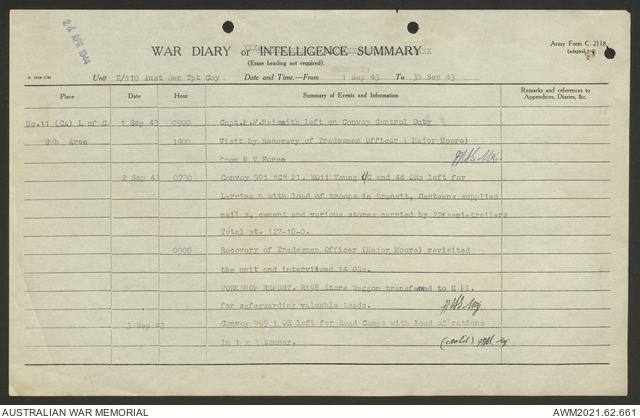 24 APR 1944
WAR DIARY or INTELLIGENCE SUMMARY
Army Form C. 2118
(adapted)
(Erase heading not required).
Unit 2/110 Aust Gen Tpt Coy Date and Time.—From 1 Sep 43 To 30 Sep 43
Place Date Hour Summary of Events and Information Remarks and references to Appendices, Diaries, &c.
No.11 (CA) L of C 1 Sep 43 0900 Capt.P.F.Naismith left on Convoy Control Duty
Sub Area 1400 Visit by Recovery of Tradesmen Officer ( Major Moore)
from N T Force
2 Sep 43 0730 Convoy 991 "C" Pl. Young and 44 ORs left for
Larrimah with load of troops in transit, Canteens supplies
mails, cement and various stores carried by 22 semi-trailers
Total wt. 127-10-0.
0900 Recovery of Tradesmen Officer (Major Moore) revisited
the unit and interviewed 14 ORs.
WORKSHOP REPORT. R198 Store Waggon transferred to E Pl.
for safeguarding valuable loads.
3 Sep 43 Convoy 995 1 OR left for Road Camps with load of rations
in 1 x 1 tonner.
(contd)
AUSTRALIAN WAR MEMORIAL
AWM2021.62.661